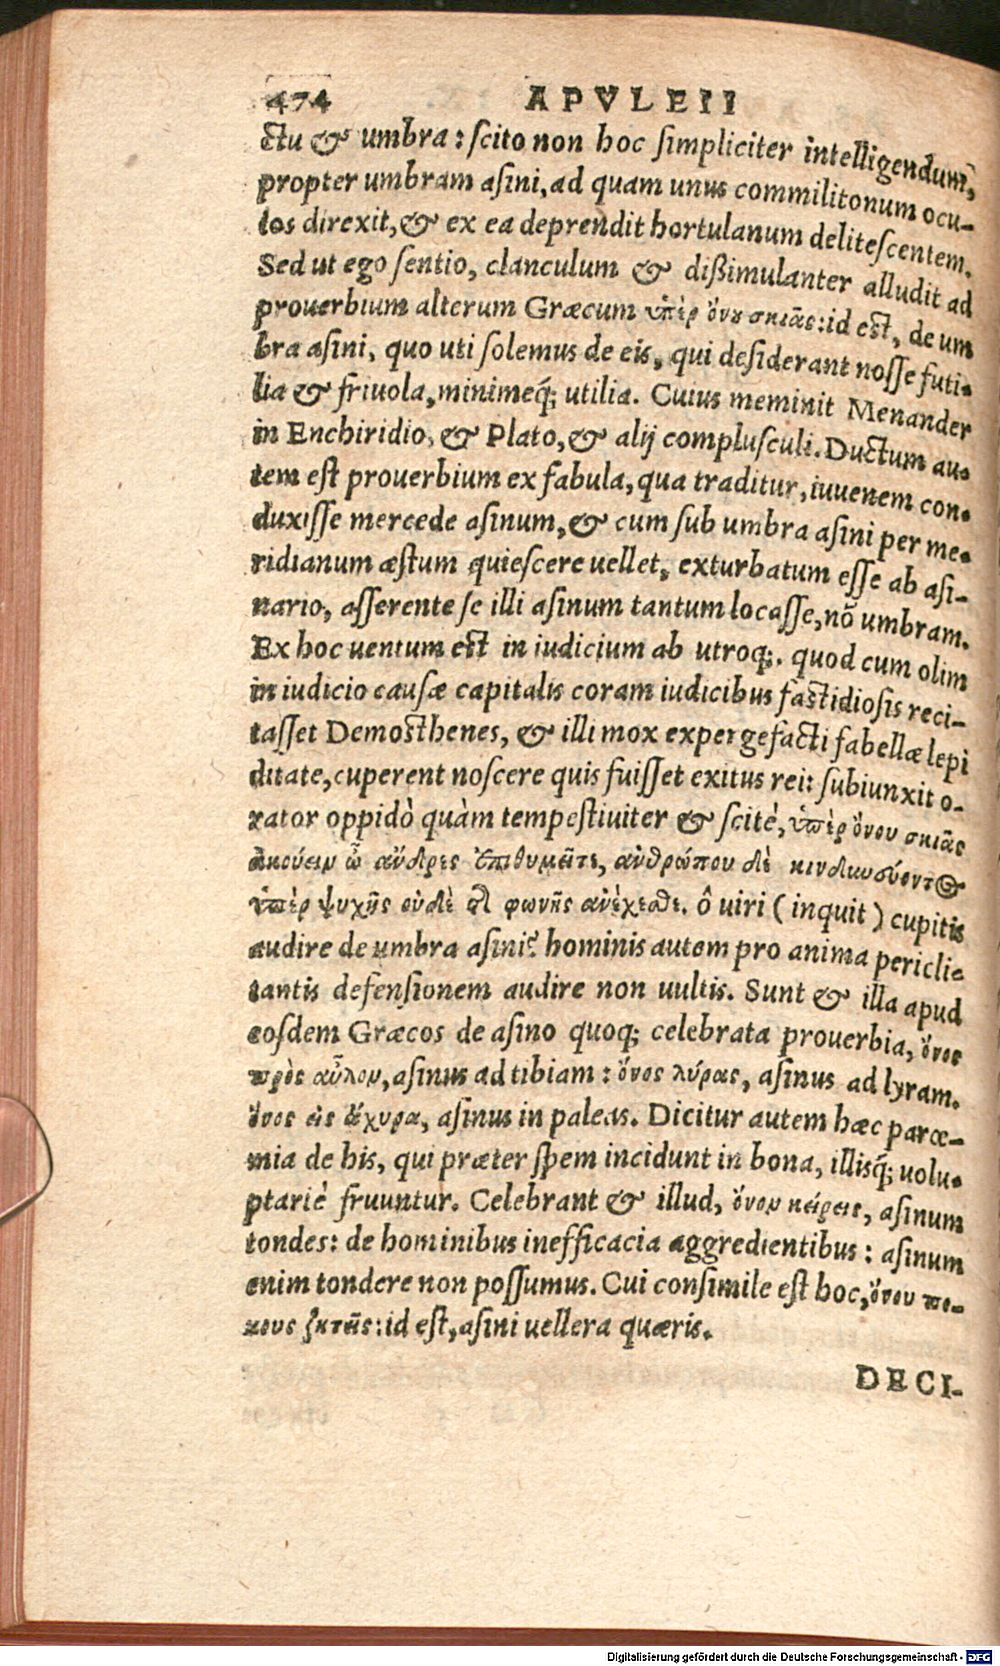 474 APVLEII
ctu & umbra: scito non hoc simpliciter intelligendum,
propter umbram asini, ad quam unus commilitonum ocu-
los direxit, & ex ea deprendit hortulanum delitescentem.
Sed ut ego sentio, clanculum & dißimulanter alludit ad
prouerbium alterum Græcum ὑπὲρ ὄνου σκιᾶς: id est, de um
bra asini, quo uti solemus de eis, qui desiderant nosse futi-
lia & friuola, minimeq́; utilia. Cuius meminit Menander
in Enchiridio, & Plato, & alij complusculi. Ductum au-
tem est prouerbium ex fabula, qua traditur, iuuenem con-
duxisse mercede asinum, & cum sub umbra asini per me-
ridianum æstum quiescere uellet, exturbatum esse ab asi-
nario, asserente se illi asinum tantum locasse, nõ umbram.
Ex hoc uentum est in iudicium ab utroq;. quod cum olim
in iudicio causæ capitalis coram iudicibus fastidiosis reci-
tasset Demosthenes, & illi mox expergefacti fabellæ lepi
ditate, cuperent noscere quis fuisset exitus rei: subiunxit o-
rator oppidò quàm tempestiuiter & scitè, ὑπὲρ ὄνου σκιᾶς
ἀκούειν ὦ ἄνδρες ἐπιθυμεῖτε, ἀνθρώπου δὲ κινδυνεύοντος
ὑπὲρ ψυχῆς οὐδὲ τῆς φωνῆς ἀνέχεσθε. ô uiri (inquit) cupitis
audire de umbra asini? hominis autem pro anima pericli-
tantis defensionem audire non uultis. Sunt & illa apud
eosdem Græcos de asino quoq; celebrata prouerbia, ὄνος
πρὸς αὖλον, asinus ad tibiam: ὄνος λύρας, asinus ad lyram.
ὄνος εἰς ἄχυρα, asinus in paleas. Dicitur autem hæc parœ-
mia de his, qui præter spem incidunt in bona, illisq́; uolu-
ptariè fruuntur. Celebrant & illud, ὄνον κείρεις, asinum
tondes: de hominibus inefficacia aggredientibus: asinum
enim tondere non possumus. Cui consimile est hoc, ὄνου πο-
κους ζητῆς: id est, asini uellera quæris.
DECI-
Digitalisierung gefördert durch die Deutsche Forschungsgemeinschaft - DFG